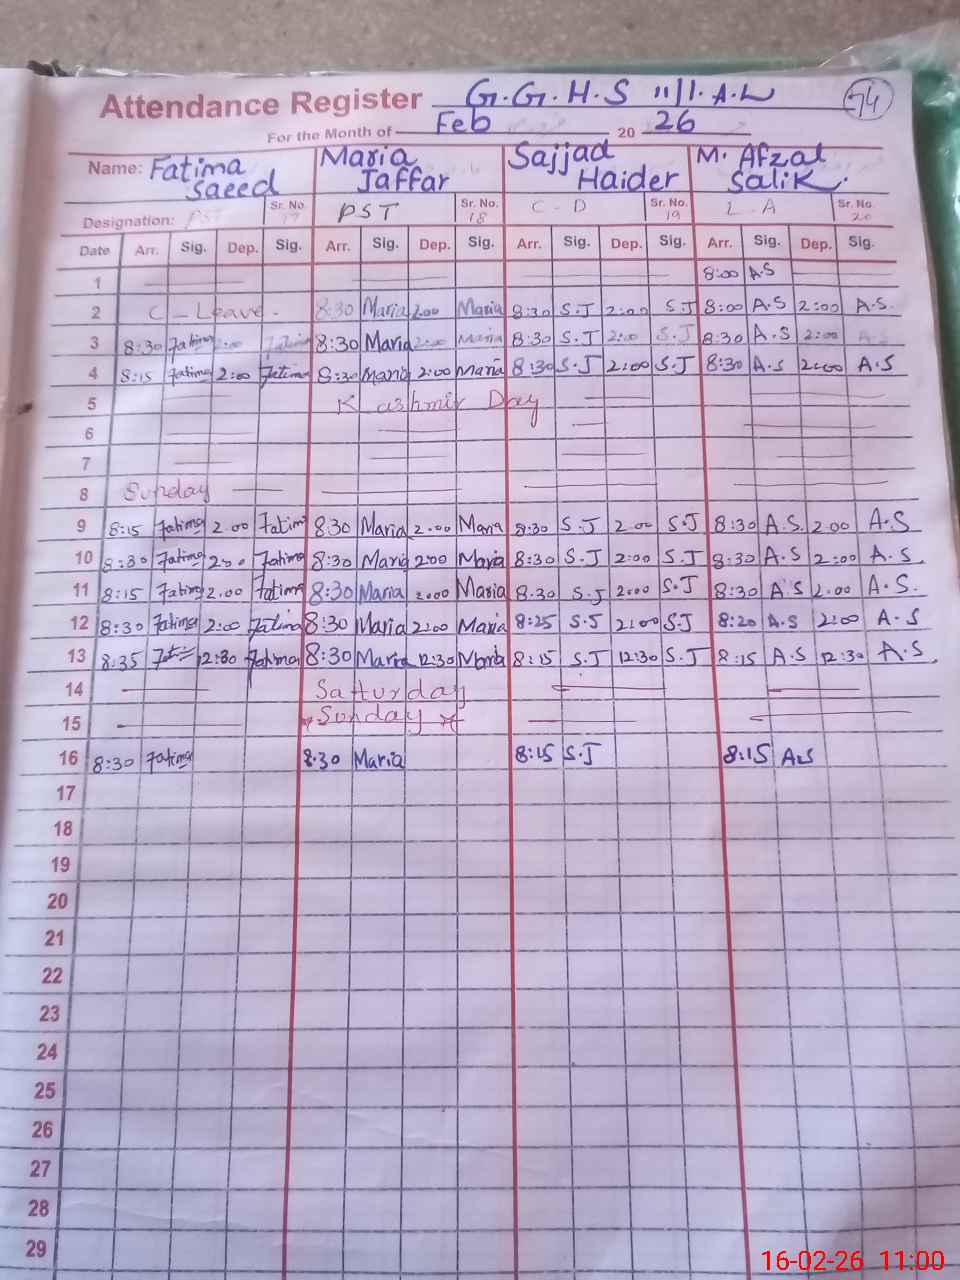 Attendance Register G.G.H.S 11/1.A.L 74
For the Month of Feb 20 26
Name: Fatima Saeed Maria Jaffar Sajjad Haider M. Afzal Salik.
Designation: PST Sr. No. 17 PST Sr. No. 18 C-D Sr. No. 19 L-A Sr. No. 20
Date Arr. Sig. Dep. Sig. Arr. Sig. Dep. Sig. Arr. Sig. Dep. Sig. Arr. Sig. Dep. Sig.
1 8:00 A.S
2 C-Leave- 8:30 Maria 2.00 Maria 8:30 S.J 2:00 S.J 8:00 A.S 2:00 A.S.
3 8:30 Fatima 2:00 Fatima 8:30 Maria 2:00 Maria 8:30 S.J 2:00 S.J 8:30 A.S 2:00 A.S
4 8:15 Fatima 2:00 Fatima 8:30 Maria 2:00 Maria 8:30 S.J 2:00 S.J 8:30 A.S 2:00 A.S
5 Kashmir Day
6
7
8 Sunday
9 8:15 Fatima 2.00 Fatima 8:30 Maria 2.00 Maria 8:30 S.J 2.00 S.J 8:30 A.S. 2.00 A.S
10 8:30 Fatima 2:00 Fatima 8:30 Maria 2:00 Maria 8:30 S.J 2:00 S.J 8:30 A.S 2:00 A.S.
11 8:15 Fatima 2.00 Fatima 8:30 Maria 2:00 Maria 8.30 S.J 2:00 S.J 8:30 A.S 2.00 A.S.
12 8:30 Fatima 2:00 Fatima 8:30 Maria 2:00 Maria 8:25 S.J 2:00 S.J 8:20 A.S 2:00 A.S
13 8:35 12:30 Fatima 8:30 Maria 12:30 Maria 8:15 S.J 12:30 S.J 8:15 A.S 12:30 A.S.
14 Satturday
15 Sunday
16 8:30 Fatima 8.30 Maria 8:15 S.J 8:15 A.S
17
18
19
20
21
22
23
24
25
26
27
28
29
16-02-26 11:00